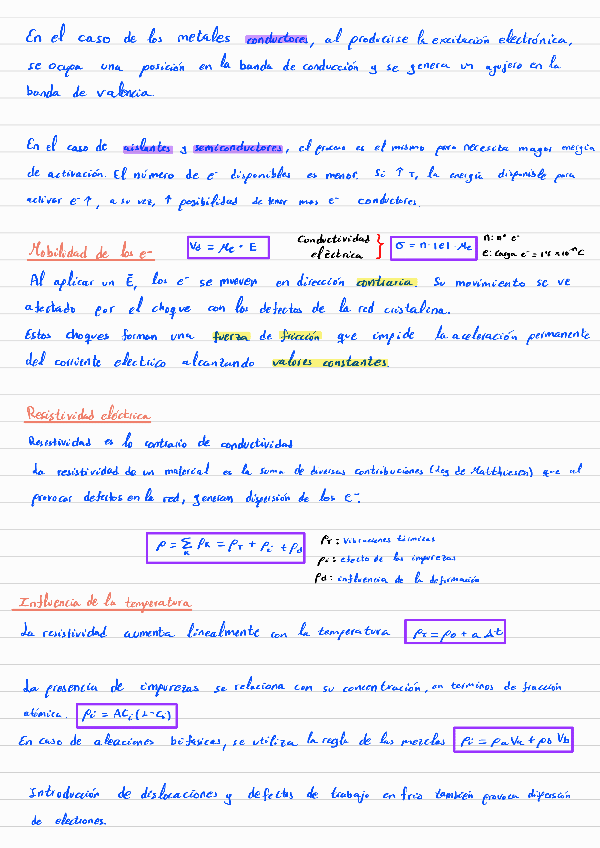 En el caso de los metales conductores, al producirse la excitación electrónica,
se ocupa una posición en la banda de conducción y se genera un agujero en la
banda de valencia.
En el caso de aislantes y semiconductores, el proceso es el mismo pero necesita mayor energía
de activación. El número de e⁻ disponibles es menor. Si ↑ T, la energía disponible para
activar e⁻ ↑, a su vez, ↑ posibilidad de tener mas e⁻ conductores.
Mobilidad de los e⁻ Vd = μe · E Conductividad eléctrica } σ = n · |e| · μe n: nº e⁻
e: carga e⁻ = 1'6 x 10⁻¹⁹ C
Al aplicar un E, los e⁻ se mueven en dirección contraria. Su movimiento se ve
afectado por el choque con los defectos de la red cristalina.
Estos choques forman una fuerza de fricción que impide la aceleración permanente
del corriente electrico alcanzando valores constantes.
Resistividad eléctrica
Resistividad es lo contrario de conductividad
La resistividad de un material es la suma de diversas contribuciones (Ley de Matthiesen) que al
provocar defectos en la red, generan dispersión de los e⁻.
ρ = Σ ρk = ρT + ρi + ρd ρT: vibraciones térmicas
k
ρi: efecto de las impurezas
ρd: influencia de la deformación
Influencia de la temperatura
La resistividad aumenta linealmente con la temperatura ρT = ρ0 + a Δt
La presencia de impurezas se relaciona con su concentración, en terminos de fracción
atómica. ρi = ACi (1-Ci)
En caso de aleaciones bifasicas, se utiliza la regla de las mezclas ρi = ρa Va + ρb Vb
Introducción de dislocaciones y defectos de trabajo en frio también provoca dispersión
de electrones.